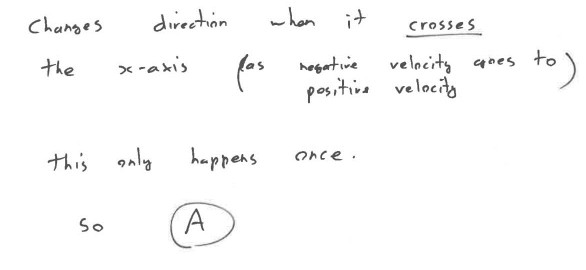 Changes direction when it crosses
the x-axis (as negative velocity goes to
positive velocity)
this only happens once.
so A